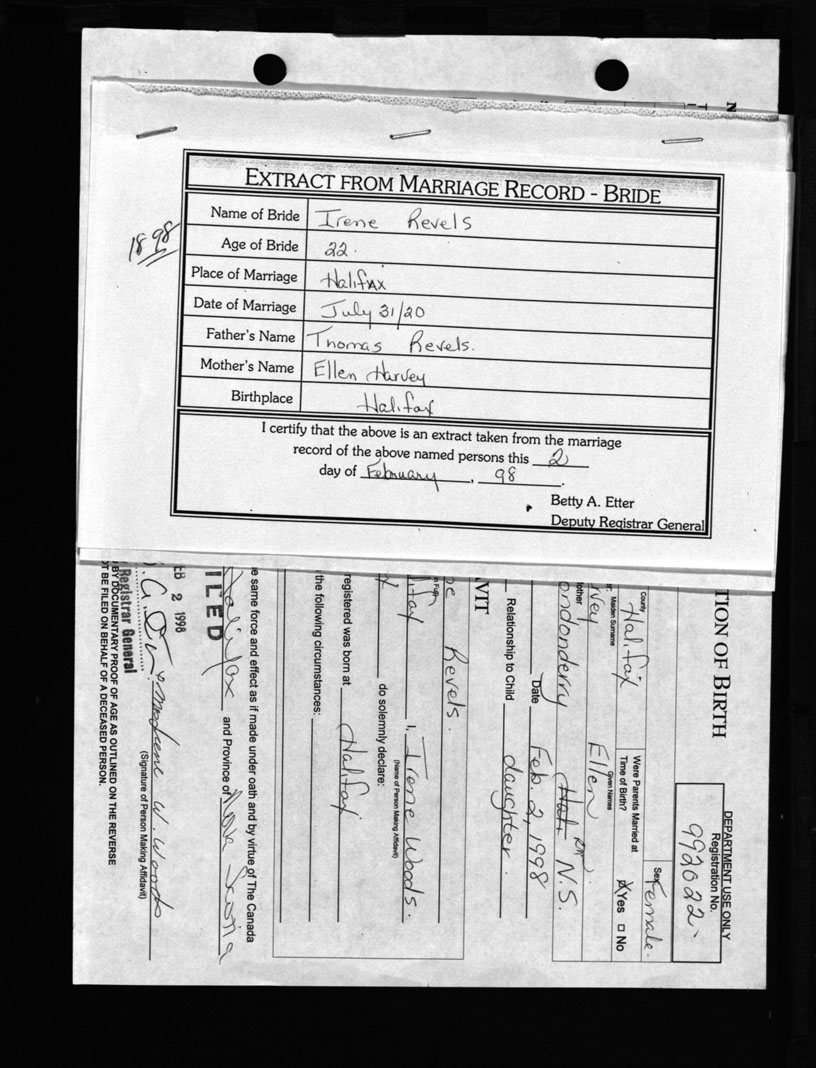 EXTRACT FROM MARRIAGE RECORD - BRIDE
Name of Bride Irene Revels
Age of Bride 22.
Place of Marriage Halifax
Date of Marriage July 31/20
Father's Name Thomas Revels.
Mother's Name Ellen Harvey
Birthplace Halifax
I certify that the above is an extract taken from the marriage
record of the above named persons this 2
day of February, 98.
Betty A. Etter
Deputy Registrar General
1898
TION OF BIRTH
DEPARTMENT USE ONLY
Registration No.
992022.
County
Halifax
Were Parents Married at
Time of Birth?
Yes No
Sex
Female.
Maiden Surname
vey
Given Names
Ellen
other
ondonderry
N.S.
Date Feb 2, 1998
Relationship to Child daughter.
VIT
e Revels.
lifax I, Irene Woods.
(Name of Person Making Affidavit)
do solemnly declare:
registered was born at Halifax
the following circumstances:
e same force and effect as if made under oath and by virtue of The Canada
Halifax and Province of Nova Scotia
ILED
EB 2 1998
W. Woods
(Signature of Person Making Affidavit)
Registrar General
BY DOCUMENTARY PROOF OF AGE AS OUTLINED ON THE REVERSE
OT BE FILED ON BEHALF OF A DECEASED PERSON.